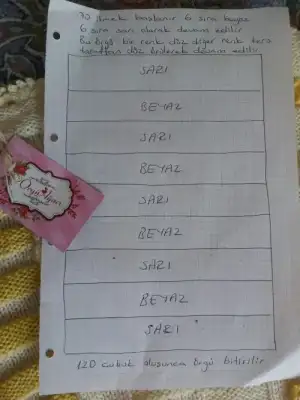 70 ilmek başlanır 6 sıra beyaz
6 sıra sarı olarak devam edilir
bir renk düz diğer renk ters
taraftan düz örülerek devam edilir
SARI
BEYAZ
SARI
BEYAZ
SARI
BEYAZ
SARI
BEYAZ
SARI
120 çubuk oluşunca örgü bitirilir